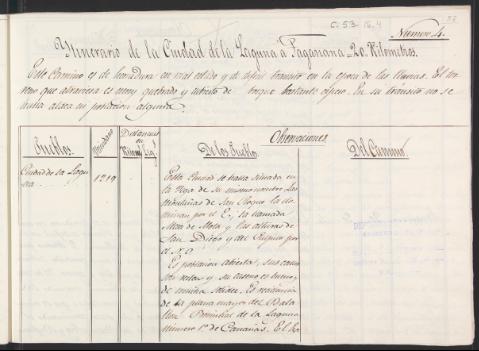 C-53-16.4
Numero 4.
Itinerario de la Ciudad de la Laguna á Taganana 20 Kilometros.
Este Camino es de herradura en mal estado y de dificil transito en la epoca de las lluvias. El ter
reno que atraviesa es muy quebrado y cubierto de bosque bastante espeso. En su transito no se
halla poblacion alguna.
Pueblos.
Vecindario
Distancias en
Kilom.
Leg.
Observaciones
De los Pueblos.
Del Camino.
Ciudad de la Lagu
na
1219
Esta Ciudad se halla situada en
la Vega de su mismo nombre. Las
de San Roque la do
minan por el E., la llamada
Mesa de Mota y las alturas de
San Diego y del por
el N.O
Es poblacion abierta, sus calles
son rectas, y su caserio es bueno,
de mucha solidez. Es residencia
de la plana mayor del Bata
llon Provincial de la Laguna
número 1º de Canarias. El